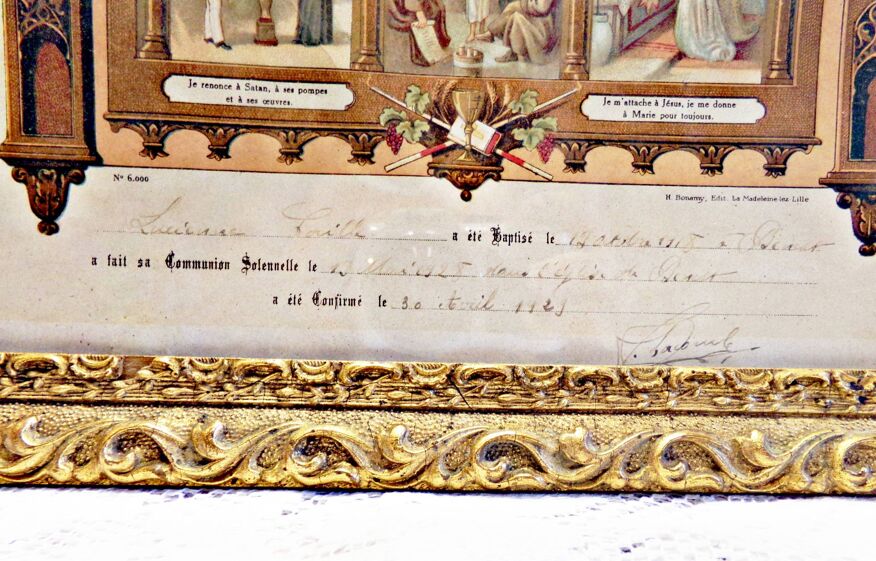 Je renonce à Satan, à ses pompes
et à ses œuvres.
Je m'attache à Jésus, je me donne
à Marie pour toujours.
N° 6.000
H. Bonamy, Edit. La Madeleine-lez Lille
Lucienne a été Baptisé le 12 Octobre 1918 à
a fait sa Communion Solennelle le 13 Mai dans l'Eglise de
a été Confirmé le 30 Avril 1929